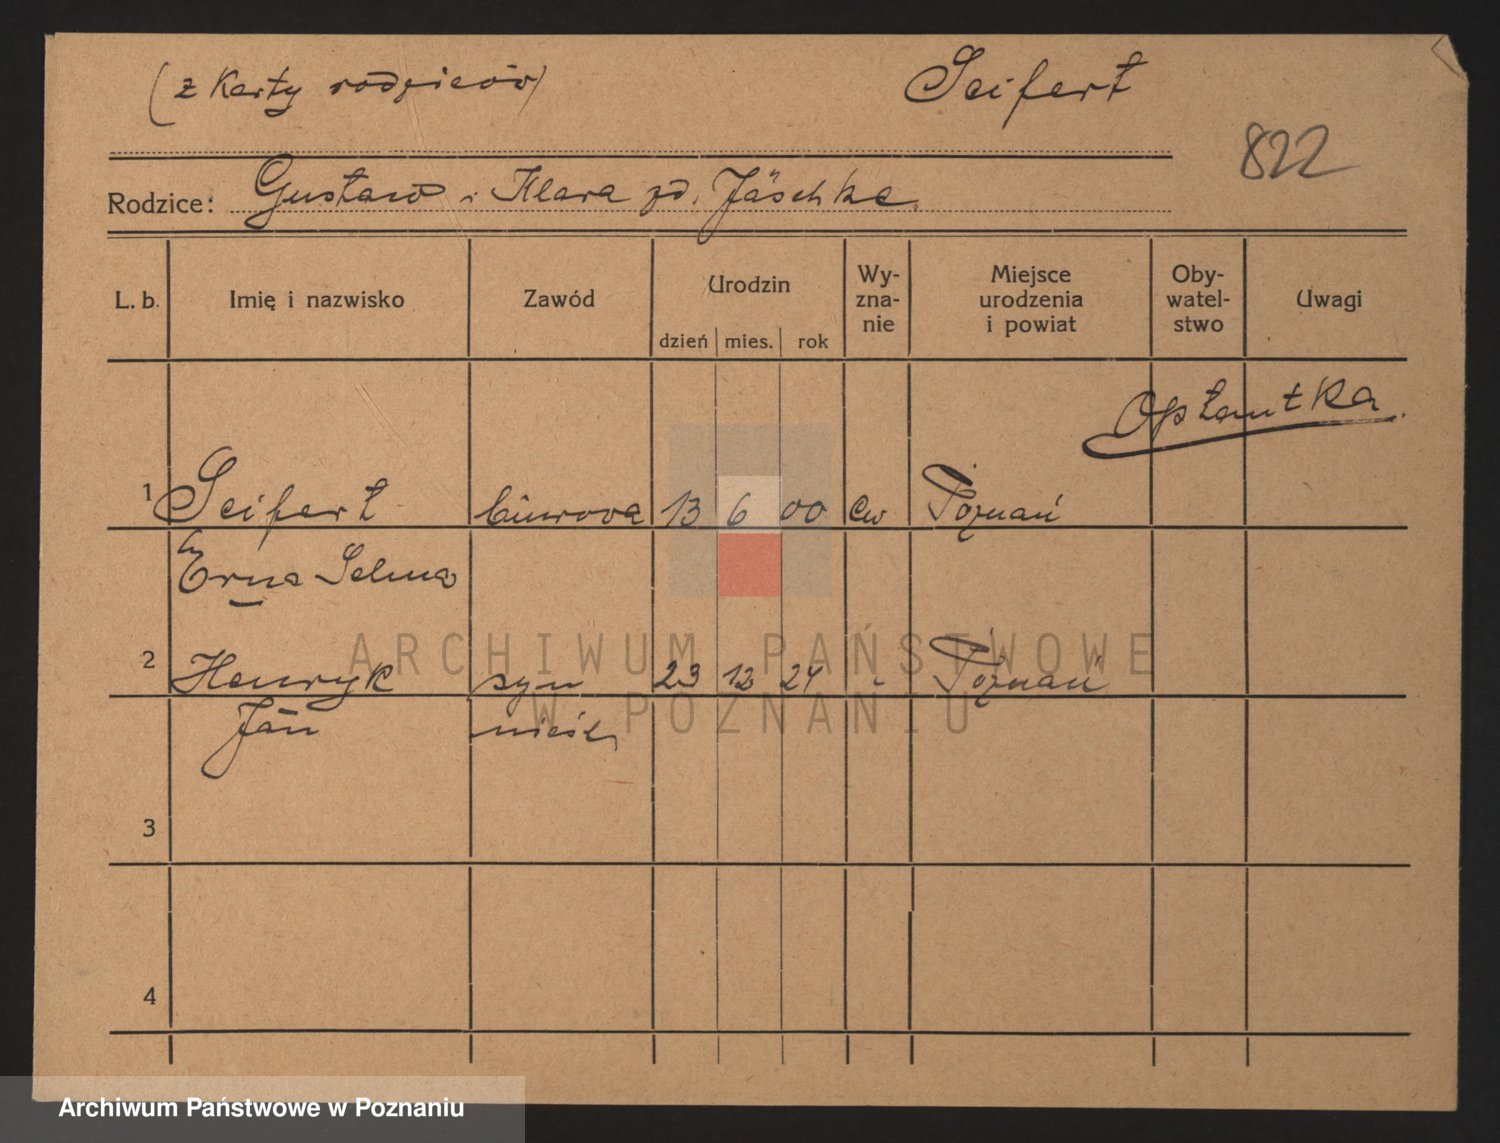 (z Karty rodziców)
Seifert
822
Rodzice: Gustaw i Klara zd. Jäschke.
L. b. Imię i nazwisko Zawód Urodzin dzień mies. rok Wyznanie Miejsce urodzenia i powiat Obywatelstwo Uwagi
Optantka.
1 Seifert biurowa 13 6 00 ew Poznań
Erna Selma
2 Henryk syn 23 12 24 " Poznań
Jan nieśl.
3
4
ARCHIWUM PAŃSTWOWE
W POZNANIU
Archiwum Państwowe w Poznaniu